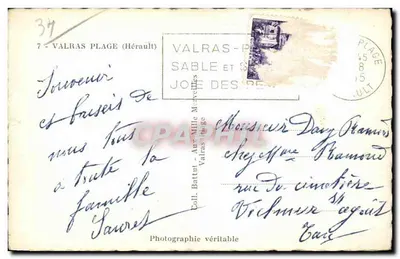 37
7 - VALRAS PLAGE (Hérault)
VALRAS-P
SABLE ET S
JOIE DES
PLAGE
Souvenir
et baisers de
nous tous
a toute la
famille
Sauret
Coll. Battut - Aux Mille Merveilles
Valras-Plage
Monsieur Dany Ramond
chez Mme Ramond
rue du cimetière
St
Tarn
Photographie véritable